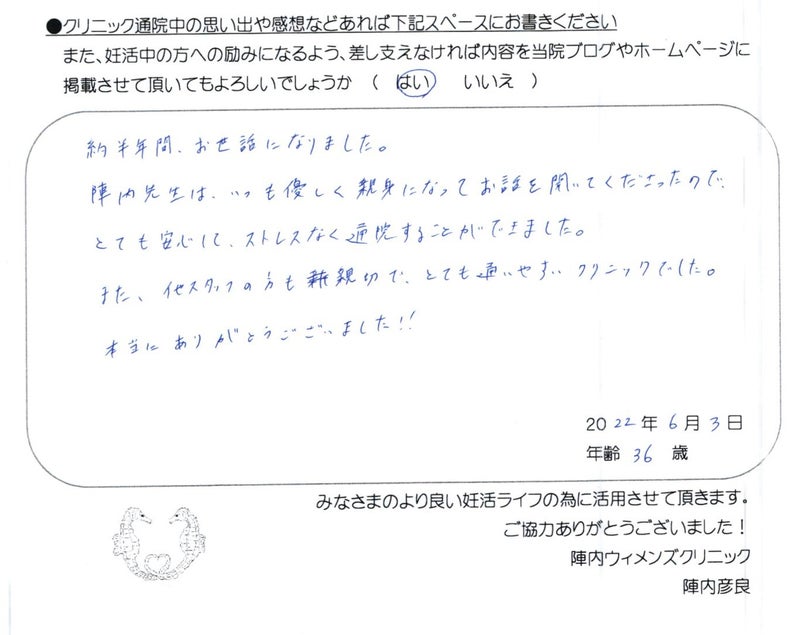 ●クリニック通院中の思い出や感想などあれば下記スペースにお書きください
また、妊活中の方への励みになるよう、差し支えなければ内容を当院ブログやホームページに
掲載させて頂いてもよろしいでしょうか （ はい いいえ ）
約半年間、お世話になりました。
陣内先生は、いつも優しく親身になってお話を聞いてくださったので、
とても安心して、ストレスなく通院することができました。
また、他スタッフの方も親切で、とても通いやすいクリニックでした。
本当にありがとうございました!!
2022年6月3日
年齢 36 歳
みなさまのより良い妊活ライフの為に活用させて頂きます。
ご協力ありがとうございました！
陣内ウィメンズクリニック
陣内彦良